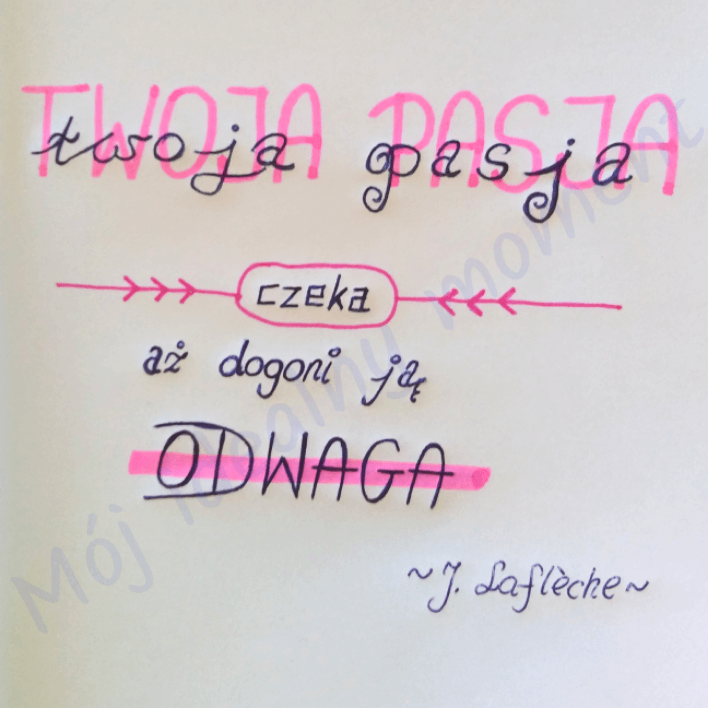 TWOJA PASJA
twoja pasja
czeka
aż dogoni ją
ODWAGA
~J. Laflèche~
Mój idealny moment